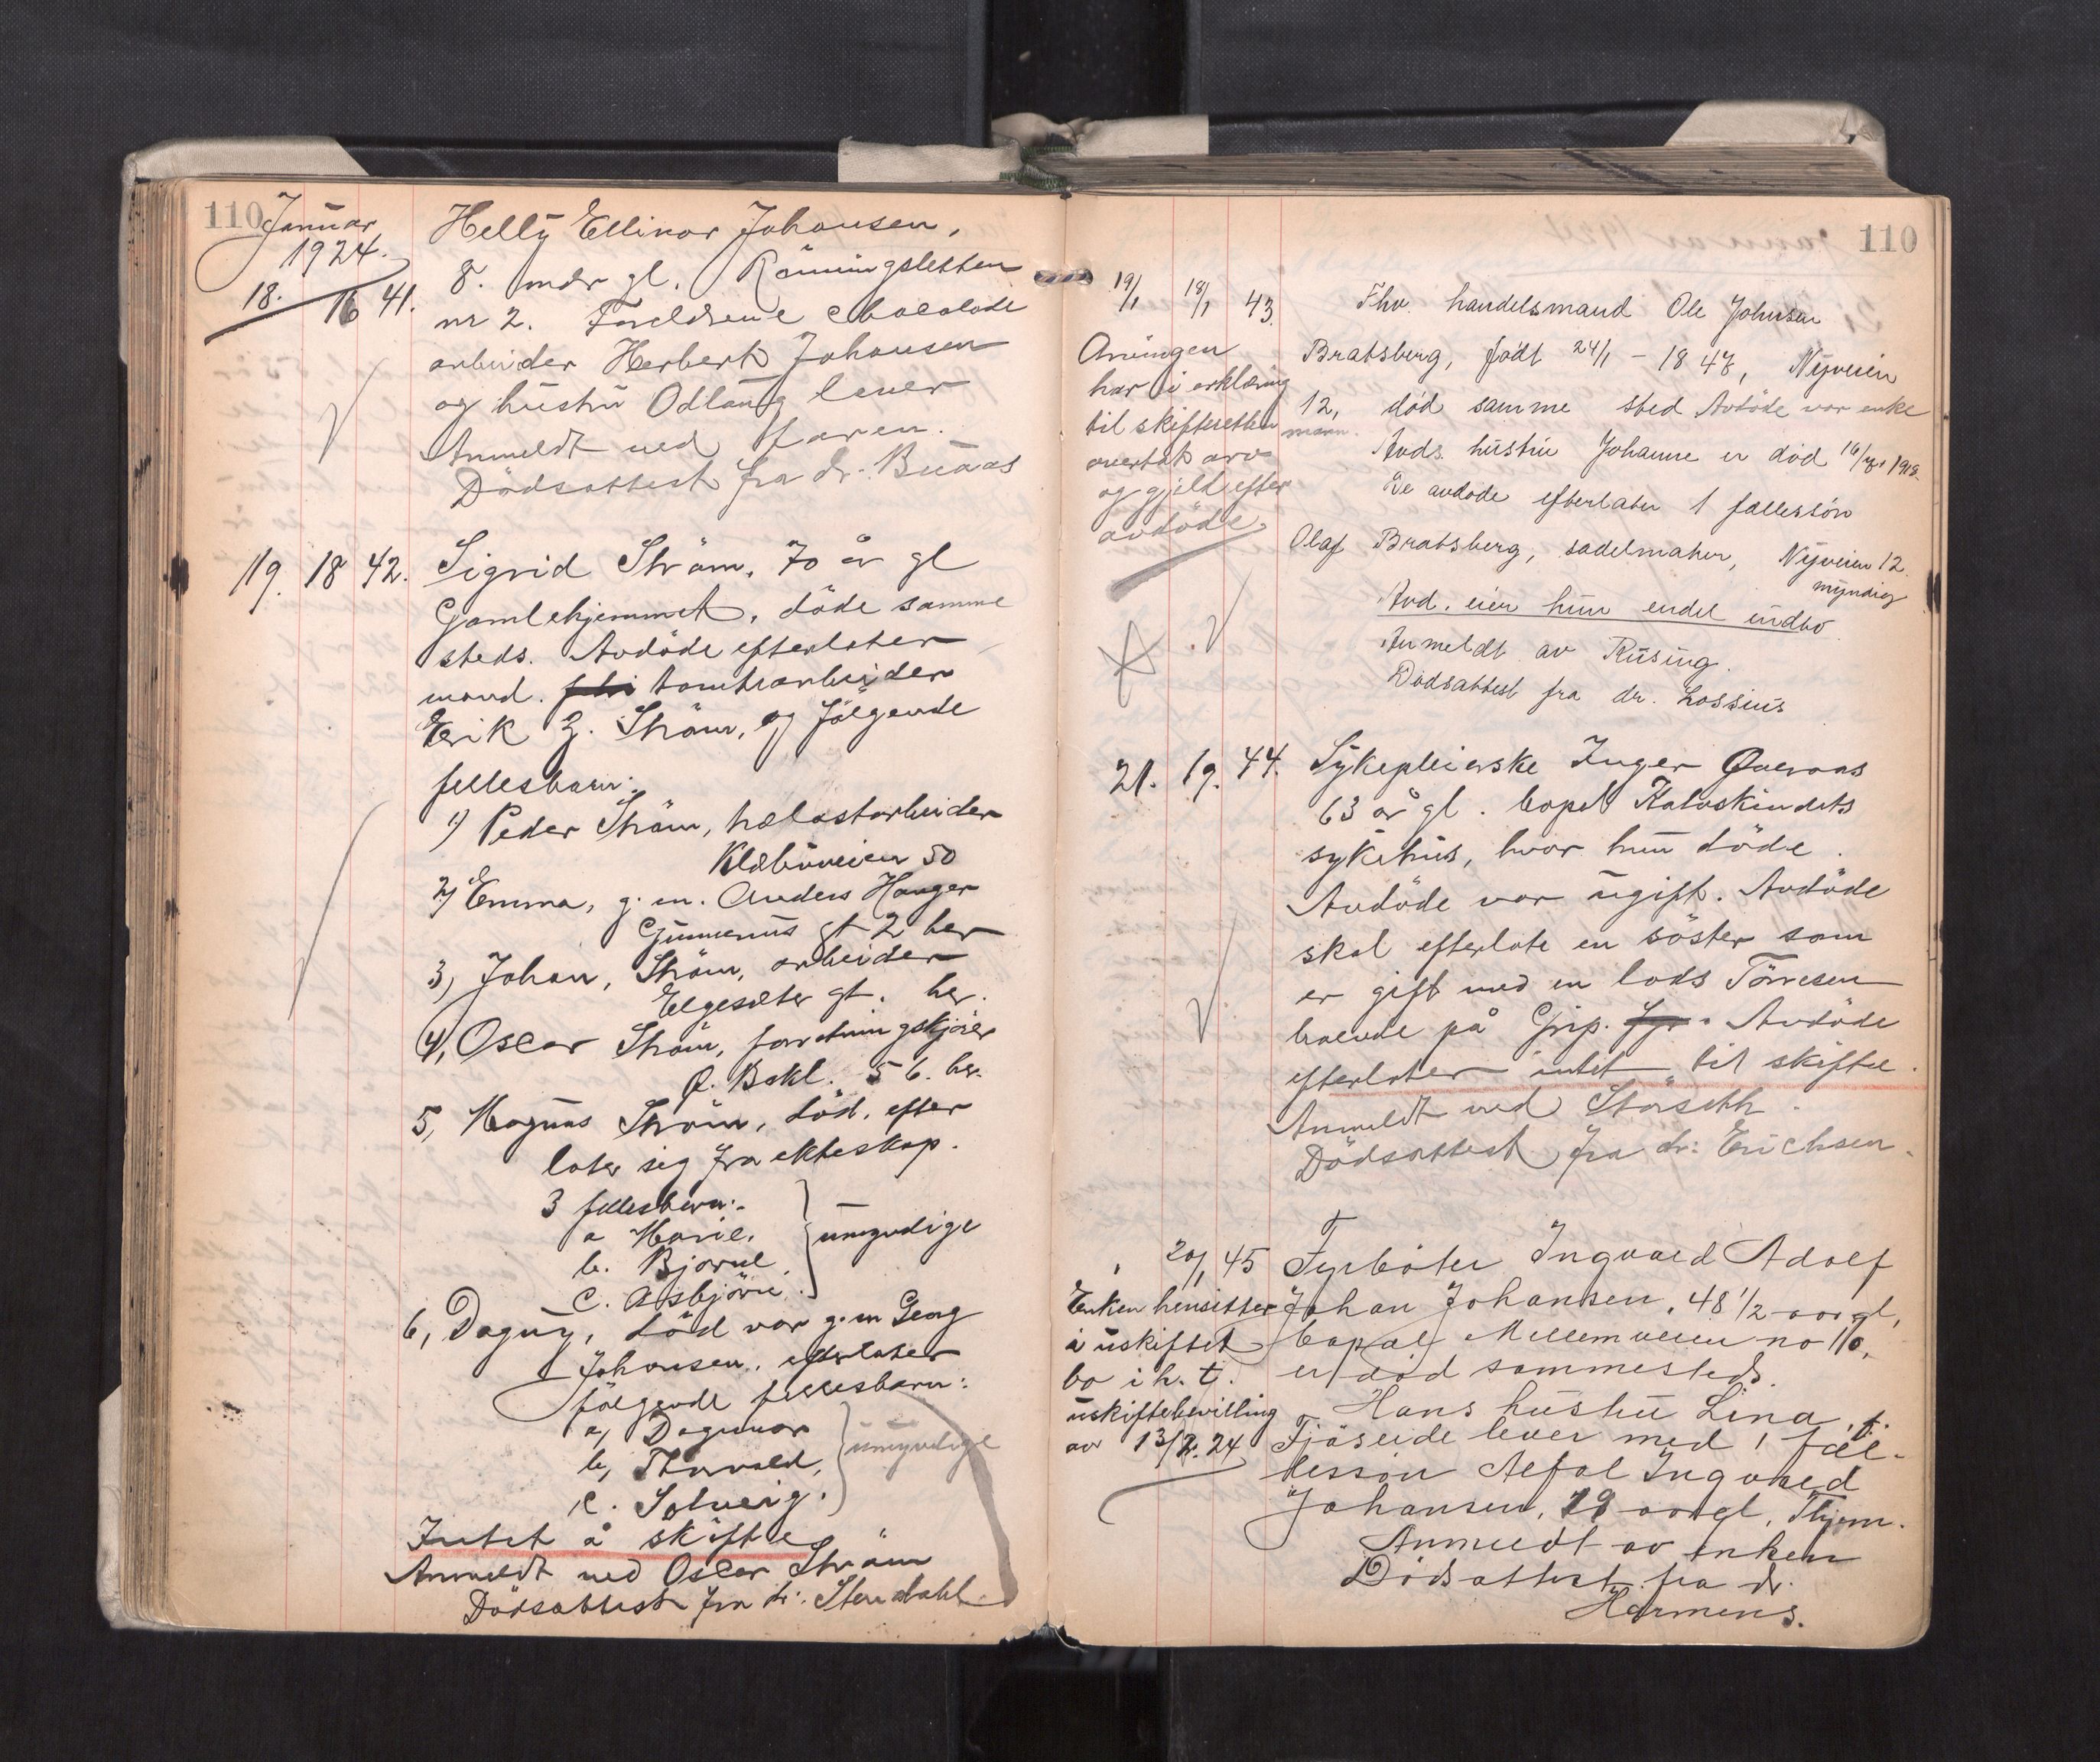 110 Januar
1924.
18. 16 41. Helly Ellinor Johansen,
8. mdr gl. Rönningsletten
nr 2. Foreldrene chocolade
arbeider Herbert Johansen
og hustru Odlaug lever
Anmeldt ved faren.
Dödsattest fra dr. Buaas
19. 18 42. Sigrid Ström, 70 år gl
Gamlehjemmet, döde samme
steds. Avdöde efterlater
mand. tomtearbeider
Erik Z. Ström, og fölgende
fellesbarn:
1) Peder Ström, helastarbeider
Klæbuveien 50
2) Emma, g. m. Anders Hauger
Gunnerus gt 2 her
3, Johan, Ström, arbeider
Elgesæter gt. her.
4, Oscar Ström, forretningskjörer
Ø. Bakl. 56. her.
5, Magnus Ström, död, efter
later sig fra ekteskap.
3 fellesbarn:
a Marie,
b. Bjarne, umyndige
c. Asbjörn.
6, Dagny, död var g. m Georg
Johansen, efterlater
fölgende fellesbarn:
a, Dagmar
b, Thorvald, umyndige
c. Solveig.
Intet å skifte
Anmeldt ved Oscar Ström
Dödsattest fra dr: Stendahl
110
19/1 18/1 43. Fhv. handelsmand Ole Johnsen
Bratsberg, födt 24/1 - 1847, Nyveien
12, död samme sted Avdöde var enke
mann.
Avds. hustru Johanne er död 16/4 1918.
De avdöde efterlater 1 fellessön
Olaf Bratsberg, sadelmaker, Nyveien 12.
myndig
Avd. eier kun endel indbo.
Anmeldt av Rusing.
Dödsattest fra dr. Lossius
Arvingen
har i erklæring
til skifteretten
overtat arv
og gjeld efter
avdöde.
21. 19. 44. Sykepleierske Inger Qvernaas
63 år gl. bopel Kalvskindets
sykehus, hvor hun döde.
Avdöde var ugift. Avdöde
skal efterlate en söster som
er gift med en lods Törresen
boende på Grip. Avdöde
efterlater intet til skifte.
Anmeldt ved Storseth.
Dödsattest fra dr: Erichsen.
20/1 45 Fyrböter Ingvald Adolf
Johan Johansen, 48 1/2 aar gl,
bopæl Mellemveien no 10,
er död sammesteds.
Hans hustru Lina, f.
Fjöseide lever med 1 fæl-
lessön Alfol Ingvald
Johansen, 19 aar gl, Thjem.
Anmeldt av enken
Dödsattest fra dr.
Harmens.
Enken hensitter
i uskiftet
bo i h. t.
uskiftebevilling
av 13/2. 24